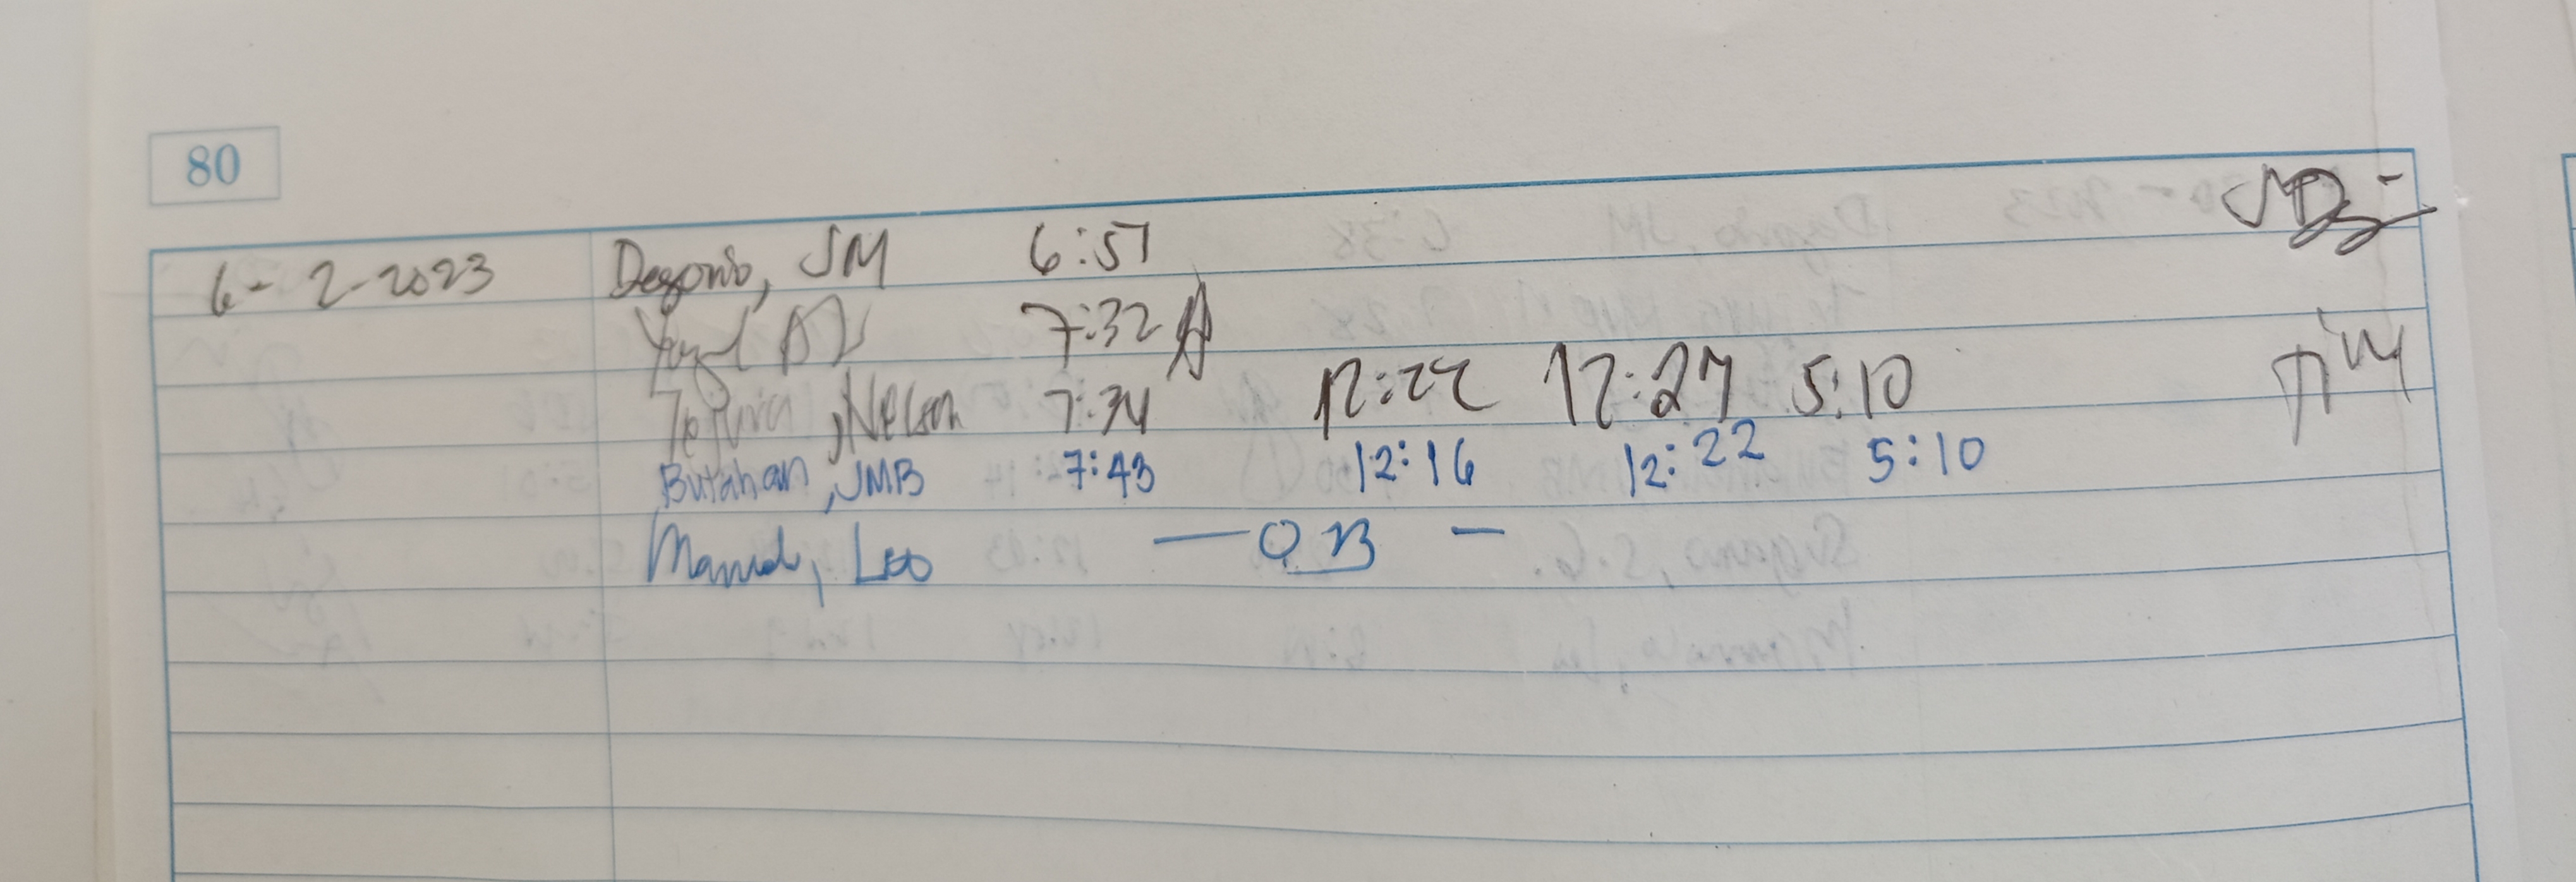 80
6-2-2023 Degorio, JM 6:51
7:32
Nelson 7:34 12:22 12:27 5:10
Butahan, JMB 7:43 12:16 12:22 5:10
Manuel, Leo — OB —